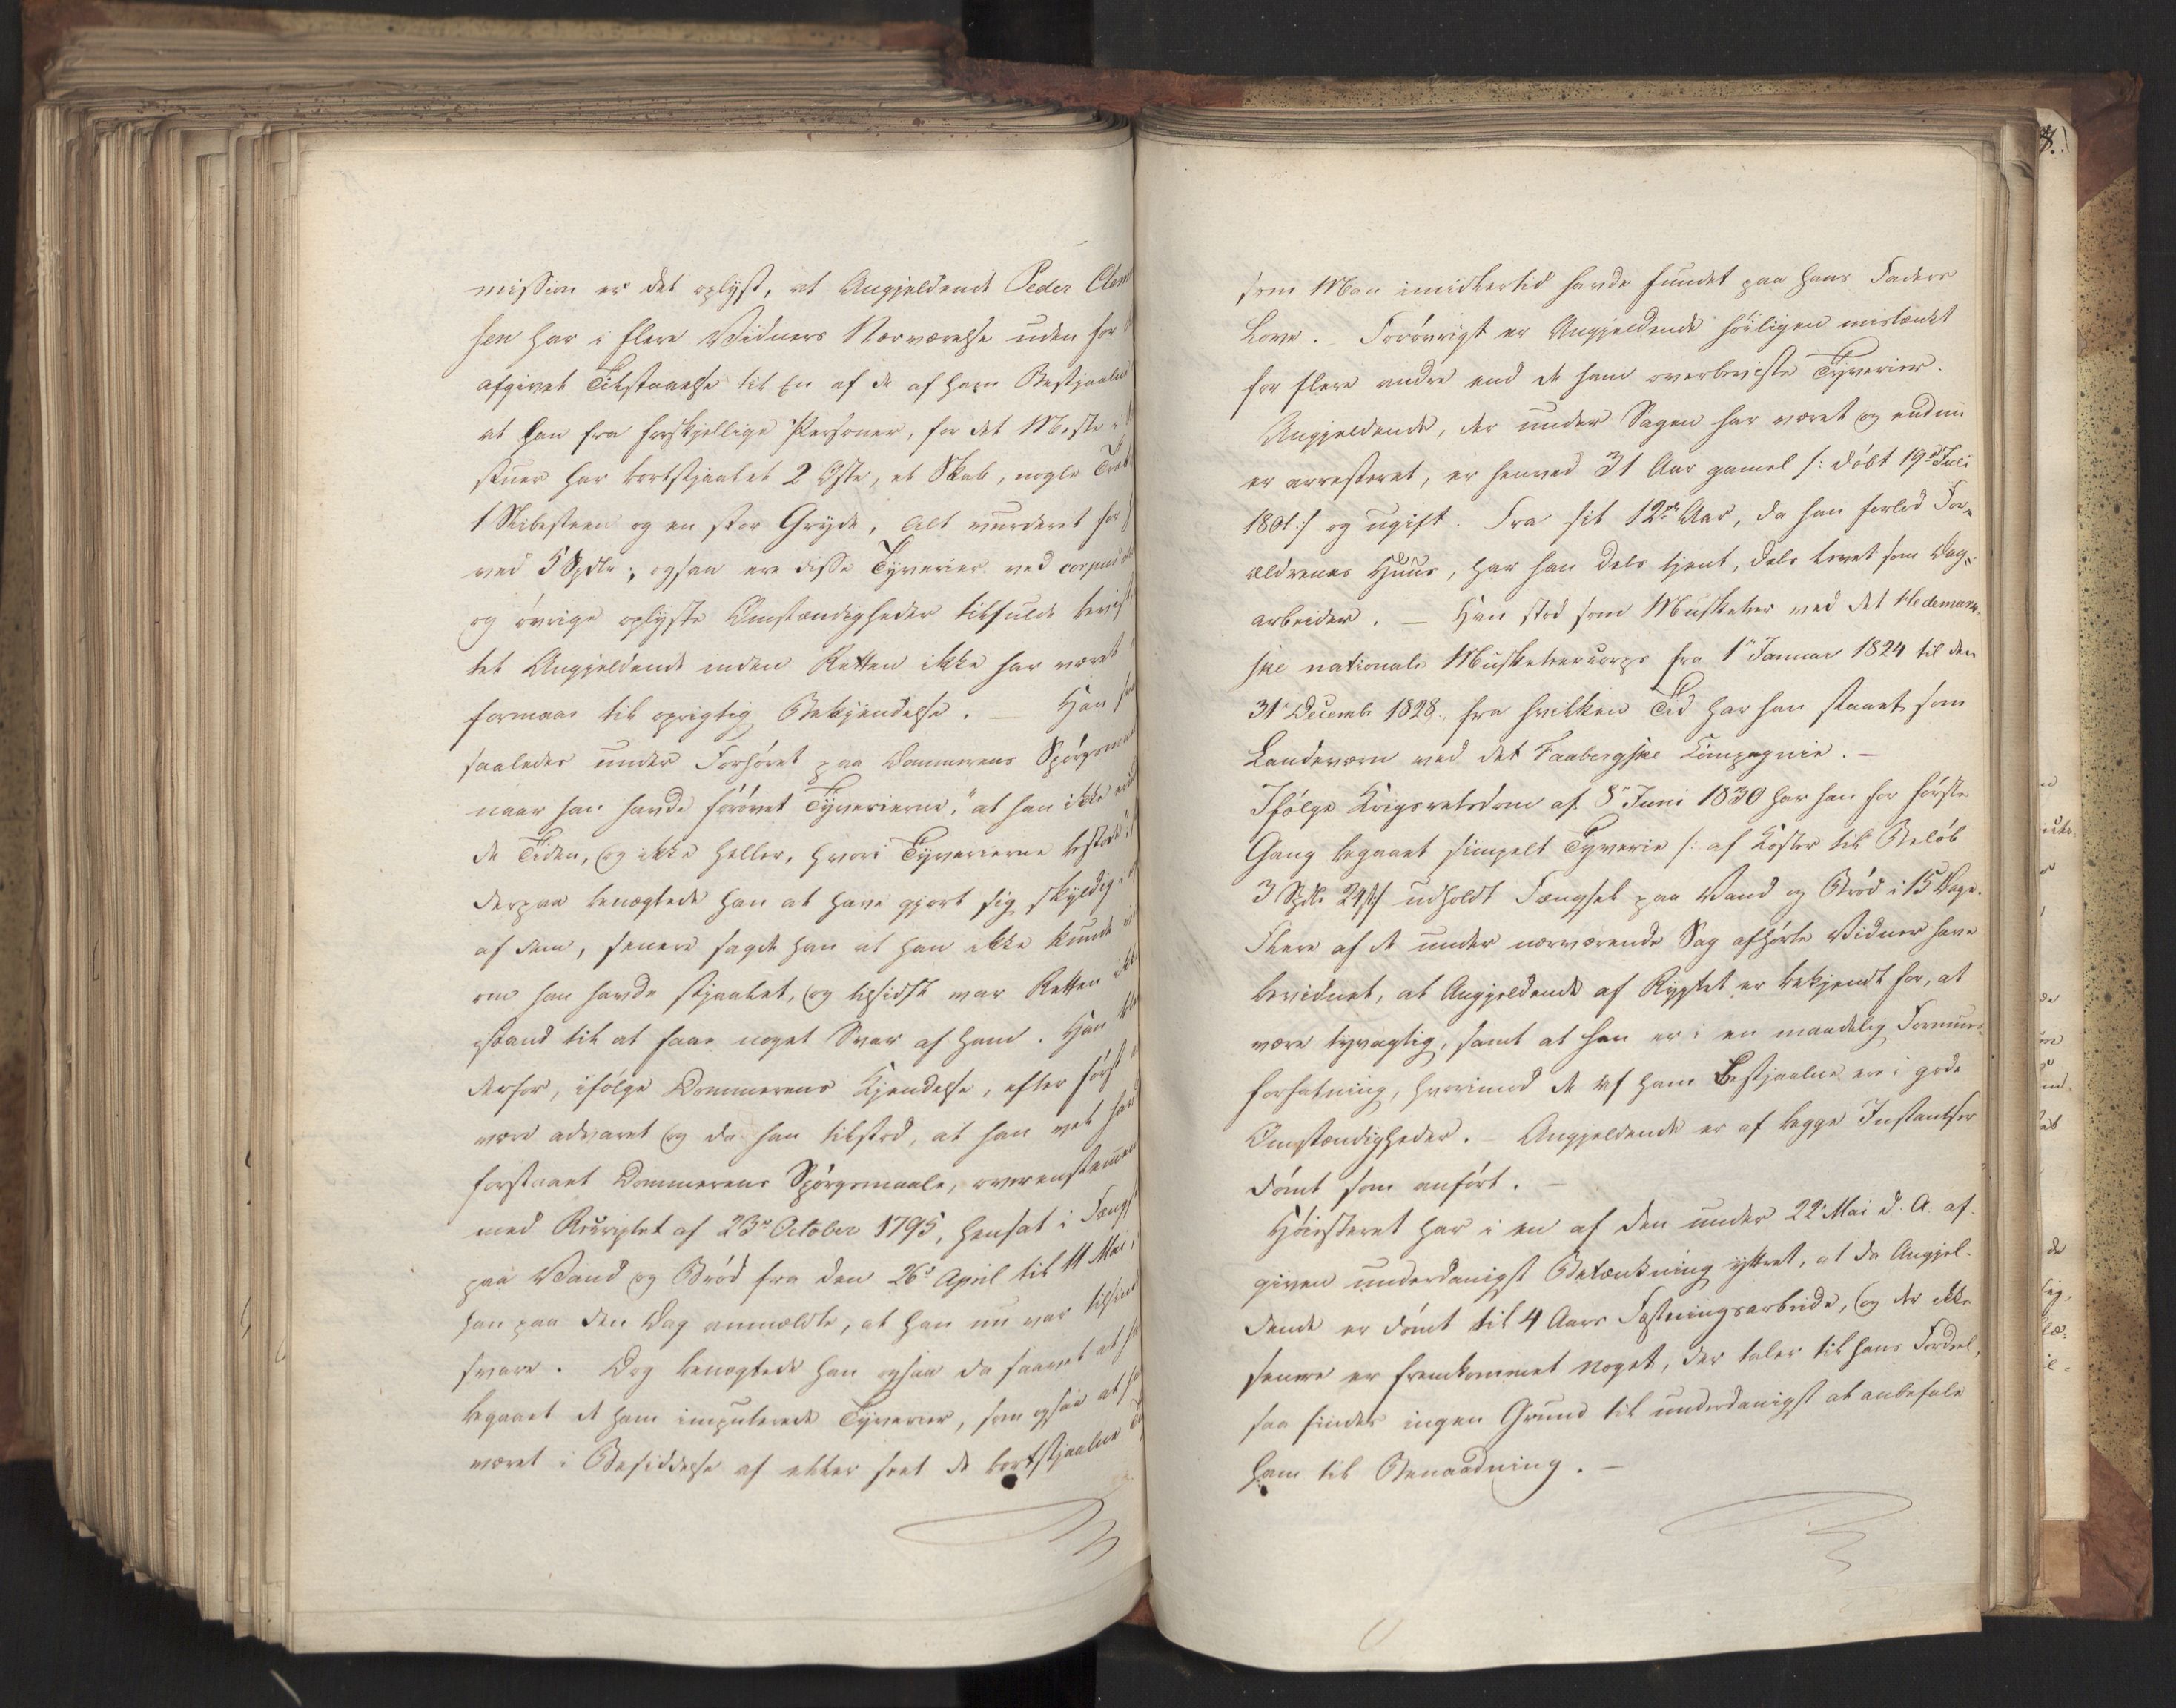 mission er det oplyst, at Angjeldende Peder Clem
sen har i flere Vidners Nærværelse uden for
afgivet Tilstaaelse til En af de af ham Bestjaalne
at han fra forskjellige Personer, for det Meste i
stuer har bortstjaalet 2 Oste, et Skab, nogle
1 Slibesteen og en stor Gryde, Alt vurderet for
ved 5 Spdlr; ogsaa ere disse Tyverier ved corpus
og øvrige oplyste Omstændigheder tilfulde bevist
tet Angjeldende inden Retten ikke har været
formaae til oprigtig Bekjendelse. — Han
saaledes under Forhøret paa Dommerens Spørgsmaal
naar han havde forøvet Tyverierne, "at han ikke
de Tiden, og ikke heller, hvori Tyverierne bestode"
derpaa benægtede han at have gjort sig skyldig i
af dem, senere sagde han at han ikke kunde
om han havde stjaalet, og tilsidst var Retten ikke
istand til at faae noget Svar af ham. Han
derfor, ifølge Dommerens Kjendelse, efter først
være advaret og da han tilstod, at han vel havde
forstaaet Dommerens Spørgsmaale, overensstemmende
med Rescriptet af 23de October 1795, hensat i Fængsel
paa Vand og Brød fra den 26de April til 11 Mai,
han paa den Dag anmældte, at han nu var tilsinds
svare. Dog benægtede han ogsaa da saavel at
begaaet de ham imputerede Tyverier, som ogsaa at
været i Besiddelse af eller seet de bortstjaalne
som Man imidlertid havde fundet paa hans Faders
Love. Forøvrigt er Angjeldende høiligen mistænkt
for flere andre end de ham overbeviste Tyverier.
Angjeldende, der under Sagen har været og endnu
er arresteret, er henved 31 Aar gamel /: døbt 19de Juli
1801 :/ og ugift. Fra sit 12te Aar, da han forlod For-
ældrenes Huus, har han dels tjent, dels levet som Dag-
arbeider. — Han stod som Musketeer ved det Hedemark-
ske nationale Musketeercorps fra 1 Januar 1824 til den
31 Decemb 1828, fra hvilken Tid har han staaet som
Landeværn ved det Faabergske Compagnie. —
Ifølge Krigsretsdom af 8 Juni 1830 har han for første
Gang begaaet simpelt Tyverie /: af Koster til Beløb
3 Spdlr 24 s :/ udholdt Fængsel paa Vand og Brød i 15 Dage.
Flere af de under nærværende Sag afhørte Vidner have
bevidnet, at Angjeldende af Rygtet er bekjendt for, at
være tyvagtig, samt at han er i en maadelig Formues-
forfatning, hvorimod de af ham Bestjaalne ere i gode
Omstændigheder. — Angjeldende er af begge Instantser
dømt som anført. —
Høiesteret har i en af den under 22 Mai d. A. af-
given underdanigst Betænkning yttret, at da Angjel-
dende er dømt til 4 Aars Fæstningsarbeide, og der ikke
senere er fremkommet noget, der taler til hans Fordeel,
saa findes ingen Grund til underdanigst at anbefale
ham til Benaadning. —